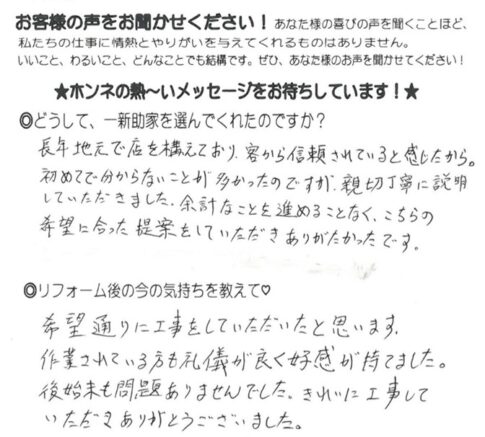 お客様の声をお聞かせください！ あなた様の喜びの声を聞くことほど、
私たちの仕事に情熱とやりがいを与えてくれるものはありません。
いいこと、わるいこと、どんなことでも結構です。ぜひ、あなた様のお声を聞かせてください！
★ホンネの熱〜いメッセージをお待ちしています！★
◎どうして、一新助家を選んでくれたのですか？
長年地元で店を構えており、客から信頼されていると感じたから。
初めてで分からないことが多かったのですが、親切丁寧に説明
していただきました。余計なことを進めることなく、こちらの
希望に合った提案をしていただきありがたかったです。
◎リフォーム後の今の気持ちを教えて♡
希望通りに工事をしていただいたと思います。
作業されている方も礼儀が良く好感が持てました。
後始末も問題ありませんでした。きれいに工事して
いただきありがとうございました。